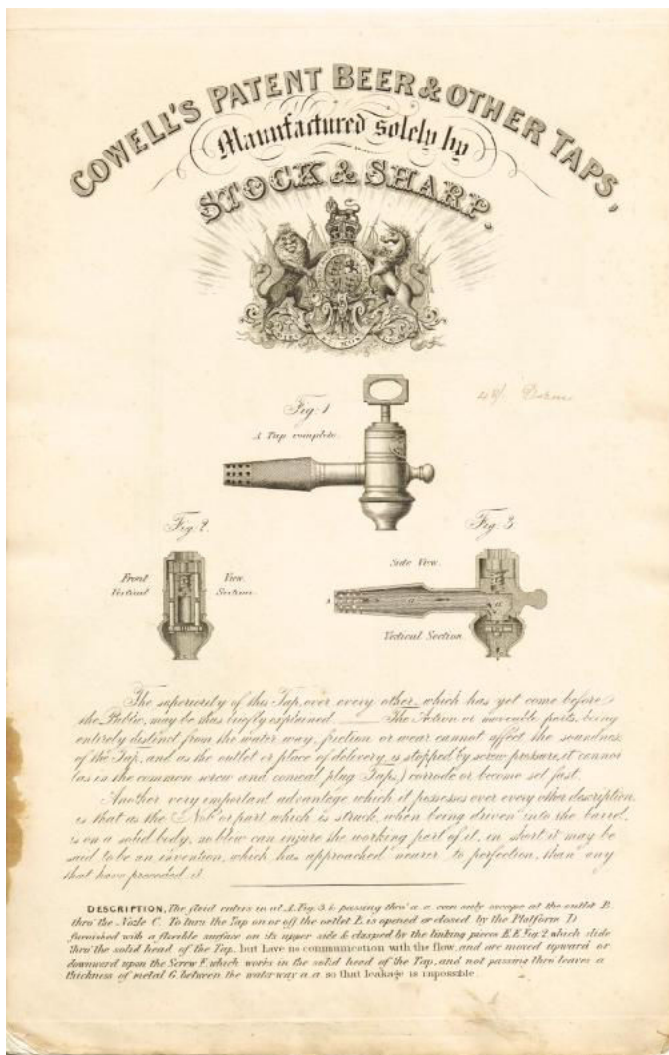 COWELL'S PATENT BEER & OTHER TAPS,
Manufactured solely by
STOCK & SHARP.
Fig. 1
A Tap complete.
Fig. 2.
Front View
Vertical Section.
Fig. 3
Side View.
Vertical Section.
The superiority of this Tap, over every other, which has yet come before
the Public, may be thus briefly explained ___ The Action or moveable parts, being
entirely distinct from the water way, friction or wear cannot affect the soundness
of the Tap, and as the outlet or place of delivery, is stopped by screw pressure, it cannot
(as in the common screw and conical plug Taps,) corrode or become set fast.
Another very important advantage which it possesses over every other description,
is that as the "Nob" or part which is struck, when being driven into the barrel,
is on a solid body, no blow can injure the working part of it, in short it may be
said to be an invention, which has approached nearer to perfection, than any
that have preceded it.
DESCRIPTION, The fluid enters in at A. Fig. 3. & passing thro' a. a. can only escape at the outlet B.
thro' the Nozle C. To turn the Tap on or off the outlet B. is opened or closed by the Platform D
furnished with a flexible surface on its upper side & clasped by the linking pieces E.E. Fig. 2 which slide
thro' the solid head of the Tap, but have no communication with the flow, and are moved upward or
downward upon the Screw F. which works in the solid head of the Tap, and not passing thro' leaves a
thickness of metal G. between the water way a.a so that leakage is impossible.